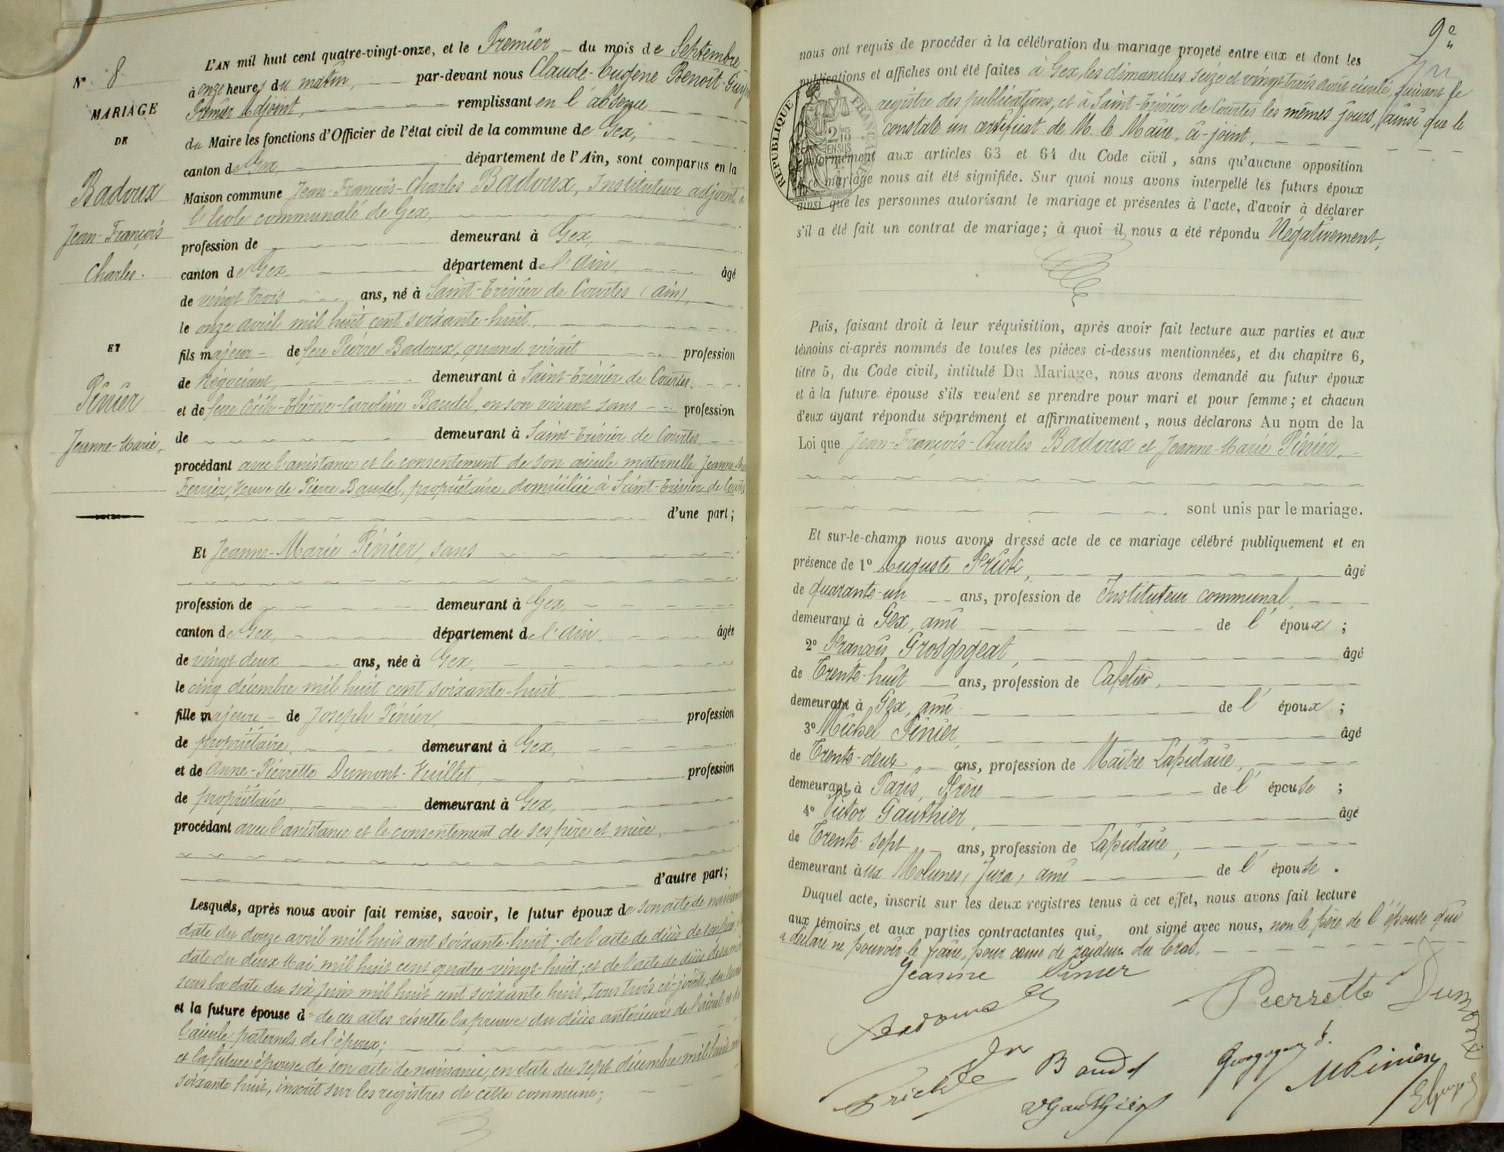 N° 8
MARIAGE
DE
Badoux
Jean-François
Charles.
ET
Pénier
Jeanne-Marie,
L'AN mil huit cent quatre-vingt-onze, et le Premier du mois de Septembre
à onze heures du matin, par-devant nous Claude-Eugène Benoit
Premier Adjoint, remplissant en l'absence
du Maire les fonctions d'Officier de l'état civil de la commune de Gex,
canton de Gex, département de l'Ain, sont comparus en la
Maison commune Jean-François-Charles Badoux, Instituteur adjoint à
l'école communale de Gex,
profession de demeurant à Gex,
canton de Gex département de l'Ain, âgé
de vingt trois ans, né à Saint-Trivier de Courtes (Ain),
le onze avril mil huit cent soixante-huit,
fils majeur de feu Pierre Badoux, quand vivait profession
de Négociant, demeurant à Saint-Trivier de Courtes,
et de feue Caroline Baudel, en son vivant sans profession
de demeurant à Saint-Trivier de Courtes,
procédant avec l'assistance et le consentement de son aïeule maternelle Jeanne
Ferrier, Veuve de Pierre Baudel, propriétaire domiciliée à Saint-Trivier de Courtes
d'une part;
Et Jeanne-Marie Pénier, sans
profession de demeurant à Gex
canton de Gex, département de l'Ain, âgée
de vingt deux ans, née à Gex,
le cinq décembre mil huit cent soixante-huit
fille majeure de Joseph Pénier, profession
de propriétaire, demeurant à Gex,
et de Anne-Pierrette Dumont-Vuillet, profession
de propriétaire, demeurant à Gex,
procédant avec l'assistance et le consentement de ses père et mère,
d'autre part;
Lesquels, après nous avoir fait remise, savoir, le futur époux de son acte de naissance
date du douze avril mil huit cent soixante-huit; de l'acte de décès de son père
date du deux Mai mil huit cent quatre vingt-huit; et de l'acte de décès de sa mère
sous la date du six juin mil huit cent soixante huit, tous trois ci-joints,
et la future épouse d de ces actes résulte la preuve du décès antérieur de l'aïeul et de
l'aïeule paternels de l'époux;
et la future épouse de son acte de naissance, en date du sept décembre mil huit cent
soixante huit, inscrit sur les registres de cette commune;
9e
nous ont requis de procéder à la célébration du mariage projeté entre eux et dont les
publications et affiches ont été faites à Gex, les dimanches seize et vingt trois août écoulé, suivant le
registre des publications, et à Saint-Trivier de Courtes les mêmes jours, ainsi que le
constate un certificat de M. le Maire, ci-joint,
RÉPUBLIQUE FRANÇAISE
conformément aux articles 63 et 64 du Code civil, sans qu'aucune opposition
à ce mariage nous ait été signifiée. Sur quoi nous avons interpellé les futurs époux
ainsi que les personnes autorisant le mariage et présentes à l'acte, d'avoir à déclarer
s'il a été fait un contrat de mariage; à quoi il nous a été répondu Négativement,
Puis, faisant droit à leur réquisition, après avoir fait lecture aux parties et aux
témoins ci-après nommés de toutes les pièces ci-dessus mentionnées, et du chapitre 6,
titre 5, du Code civil, intitulé Du Mariage, nous avons demandé au futur époux
et à la future épouse s'ils veulent se prendre pour mari et pour femme; et chacun
d'eux ayant répondu séparément et affirmativement, nous déclarons Au nom de la
Loi que Jean-François-Charles Badoux et Jeanne-Marie Pénier,
sont unis par le mariage.
Et sur-le-champ nous avons dressé acte de ce mariage célébré publiquement et en
présence de 1° Auguste Frick, âgé
de quarante-un ans, profession de Instituteur communal,
demeurant à Gex, ami de l'époux;
2° François Grosgogeat, âgé
de Trente-huit ans, profession de Cafetier,
demeurant à Gex, ami de l'époux;
3° Michel Pénier, âgé
de Trente-deux ans, profession de Maître Lapidaire,
demeurant à Paris, frère de l'épouse;
4° Victor Gauthier, âgé
de Trente sept ans, profession de Lapidaire,
demeurant aux Molunes, Jura, ami de l'épouse.
Duquel acte, inscrit sur les deux registres tenus à cet effet, nous avons fait lecture
aux témoins et aux parties contractantes qui, ont signé avec nous, non le père de l'épouse qui
a déclaré ne pouvoir le faire, pour cause de raideur du bras.
Jeanne Pénier
Badoux
Pierrette Dumont
Frick
Baudel
VGauthier
MPénier